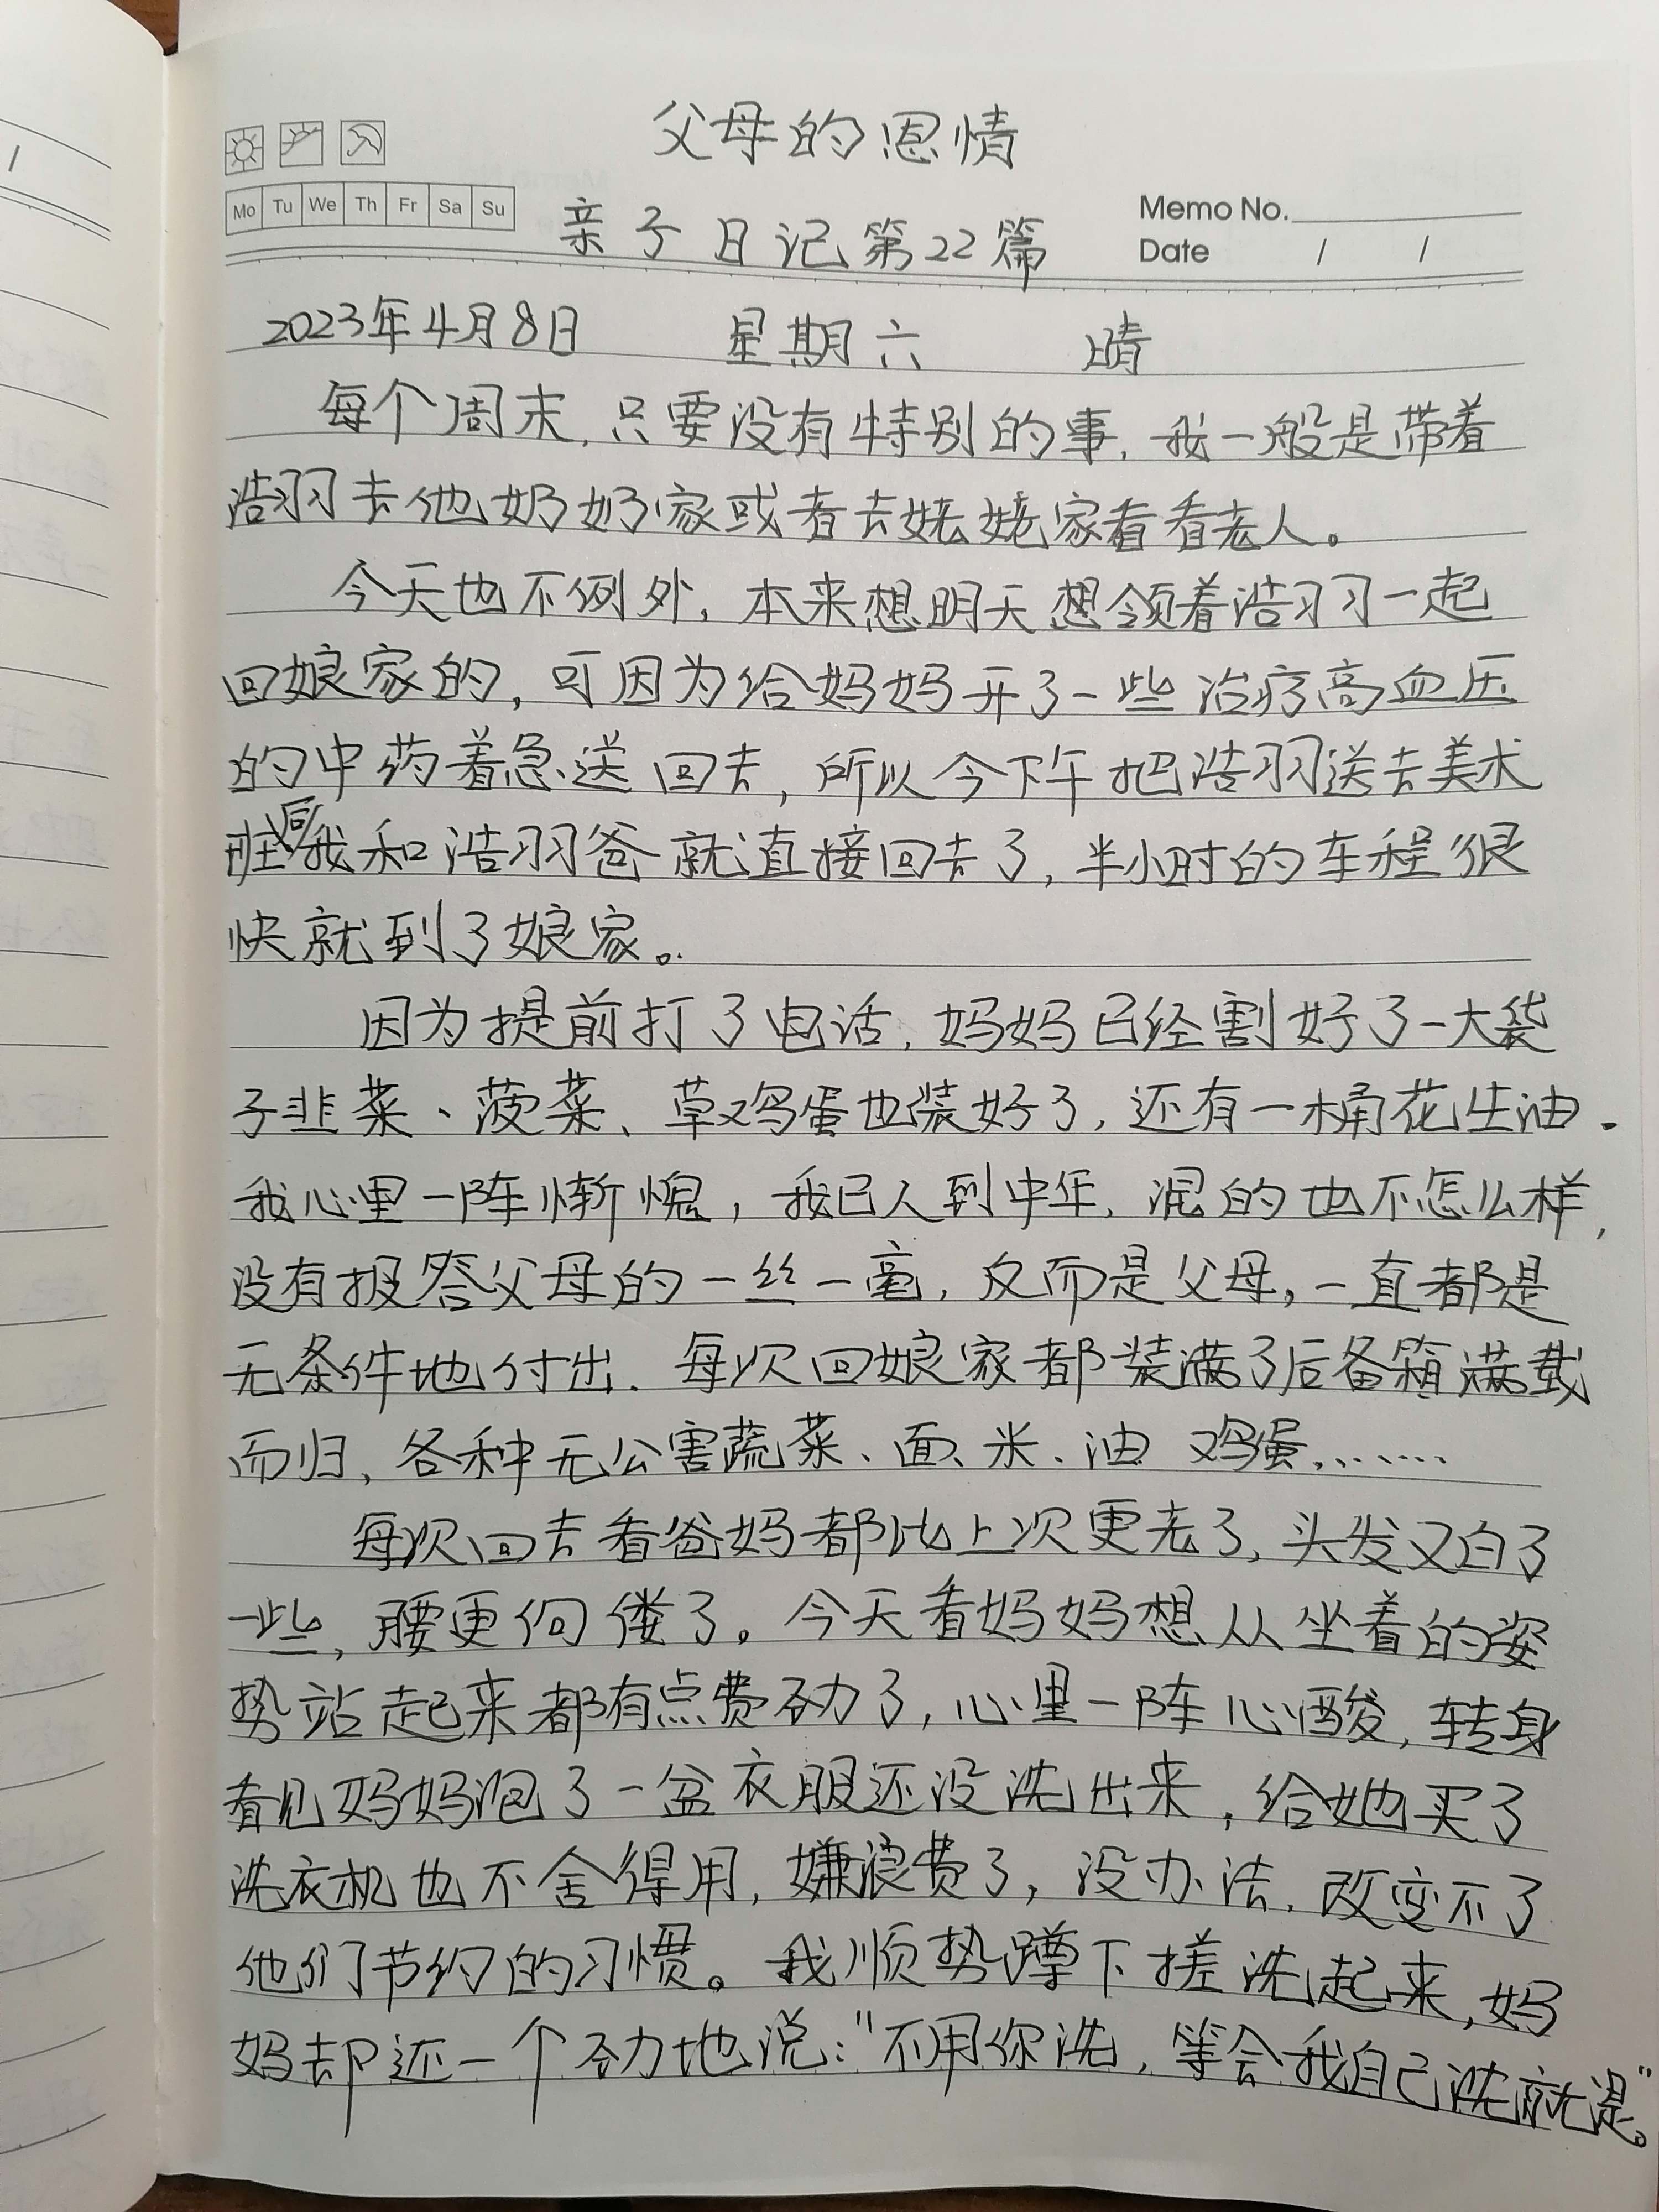 父母的恩情
Mo Tu We Th Fr Sa Su
Memo No.
亲子日记第22篇
Date / /
2023年4月8日 星期六 晴
每个周末,只要没有特别的事,我一般是带着
浩羽去他奶奶家或者去姥姥家看看老人。
今天也不例外,本来想明天想领着浩羽一起
回娘家的,可因为给妈妈开了一些治疗高血压
的中药着急送回去,所以今下午把浩羽送去美术
班后我和浩羽爸就直接回去了,半小时的车程很
快就到了娘家。
因为提前打了电话,妈妈已经割好了一大袋
子韭菜、菠菜、草鸡蛋也装好了,还有一桶花生油.
我心里一阵惭愧,我已人到中年,混的也不怎么样,
没有报答父母的一丝一毫,反而是父母,一直都是
无条件地付出.每次回娘家都装满了后备箱满载
而归,各种无公害蔬菜、面、米、油 鸡蛋,……
每次回去看爸妈都比上次更老了,头发又白了
一些,腰更佝偻了。今天看妈妈想从坐着的姿
势站起来都有点费劲了,心里一阵心酸,转身
看见妈妈泡了一盆衣服还没洗出来,给她买了
洗衣机也不舍得用,嫌浪费了,没办法,改变不了
他们节约的习惯。我顺势蹲下搓洗起来,妈
妈却还一个劲地说:"不用你洗,等会我自己洗就是。"